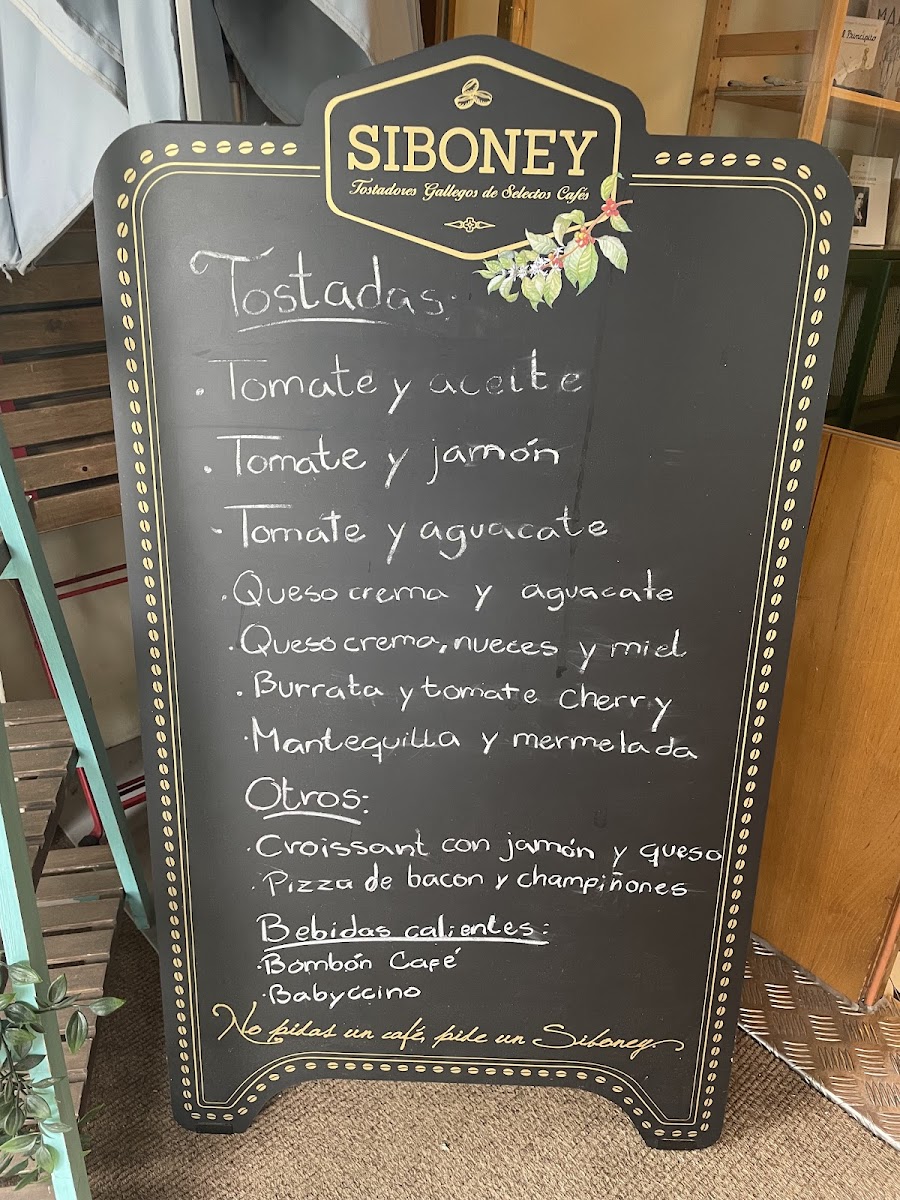 SIBONEY
Tostadores Gallegos de Selectos Cafés
Tostadas:
· Tomate y aceite
· Tomate y jamón
· Tomate y aguacate
· Queso crema y aguacate
· Queso crema, nueces y miel
· Burrata y tomate cherry
· Mantequilla y mermelada
Otros:
· Croissant con jamón y queso
· Pizza de bacon y champiñones
Bebidas calientes:
· Bombón Café
· Babyccino
No pidas un café, pide un Siboney
Principito